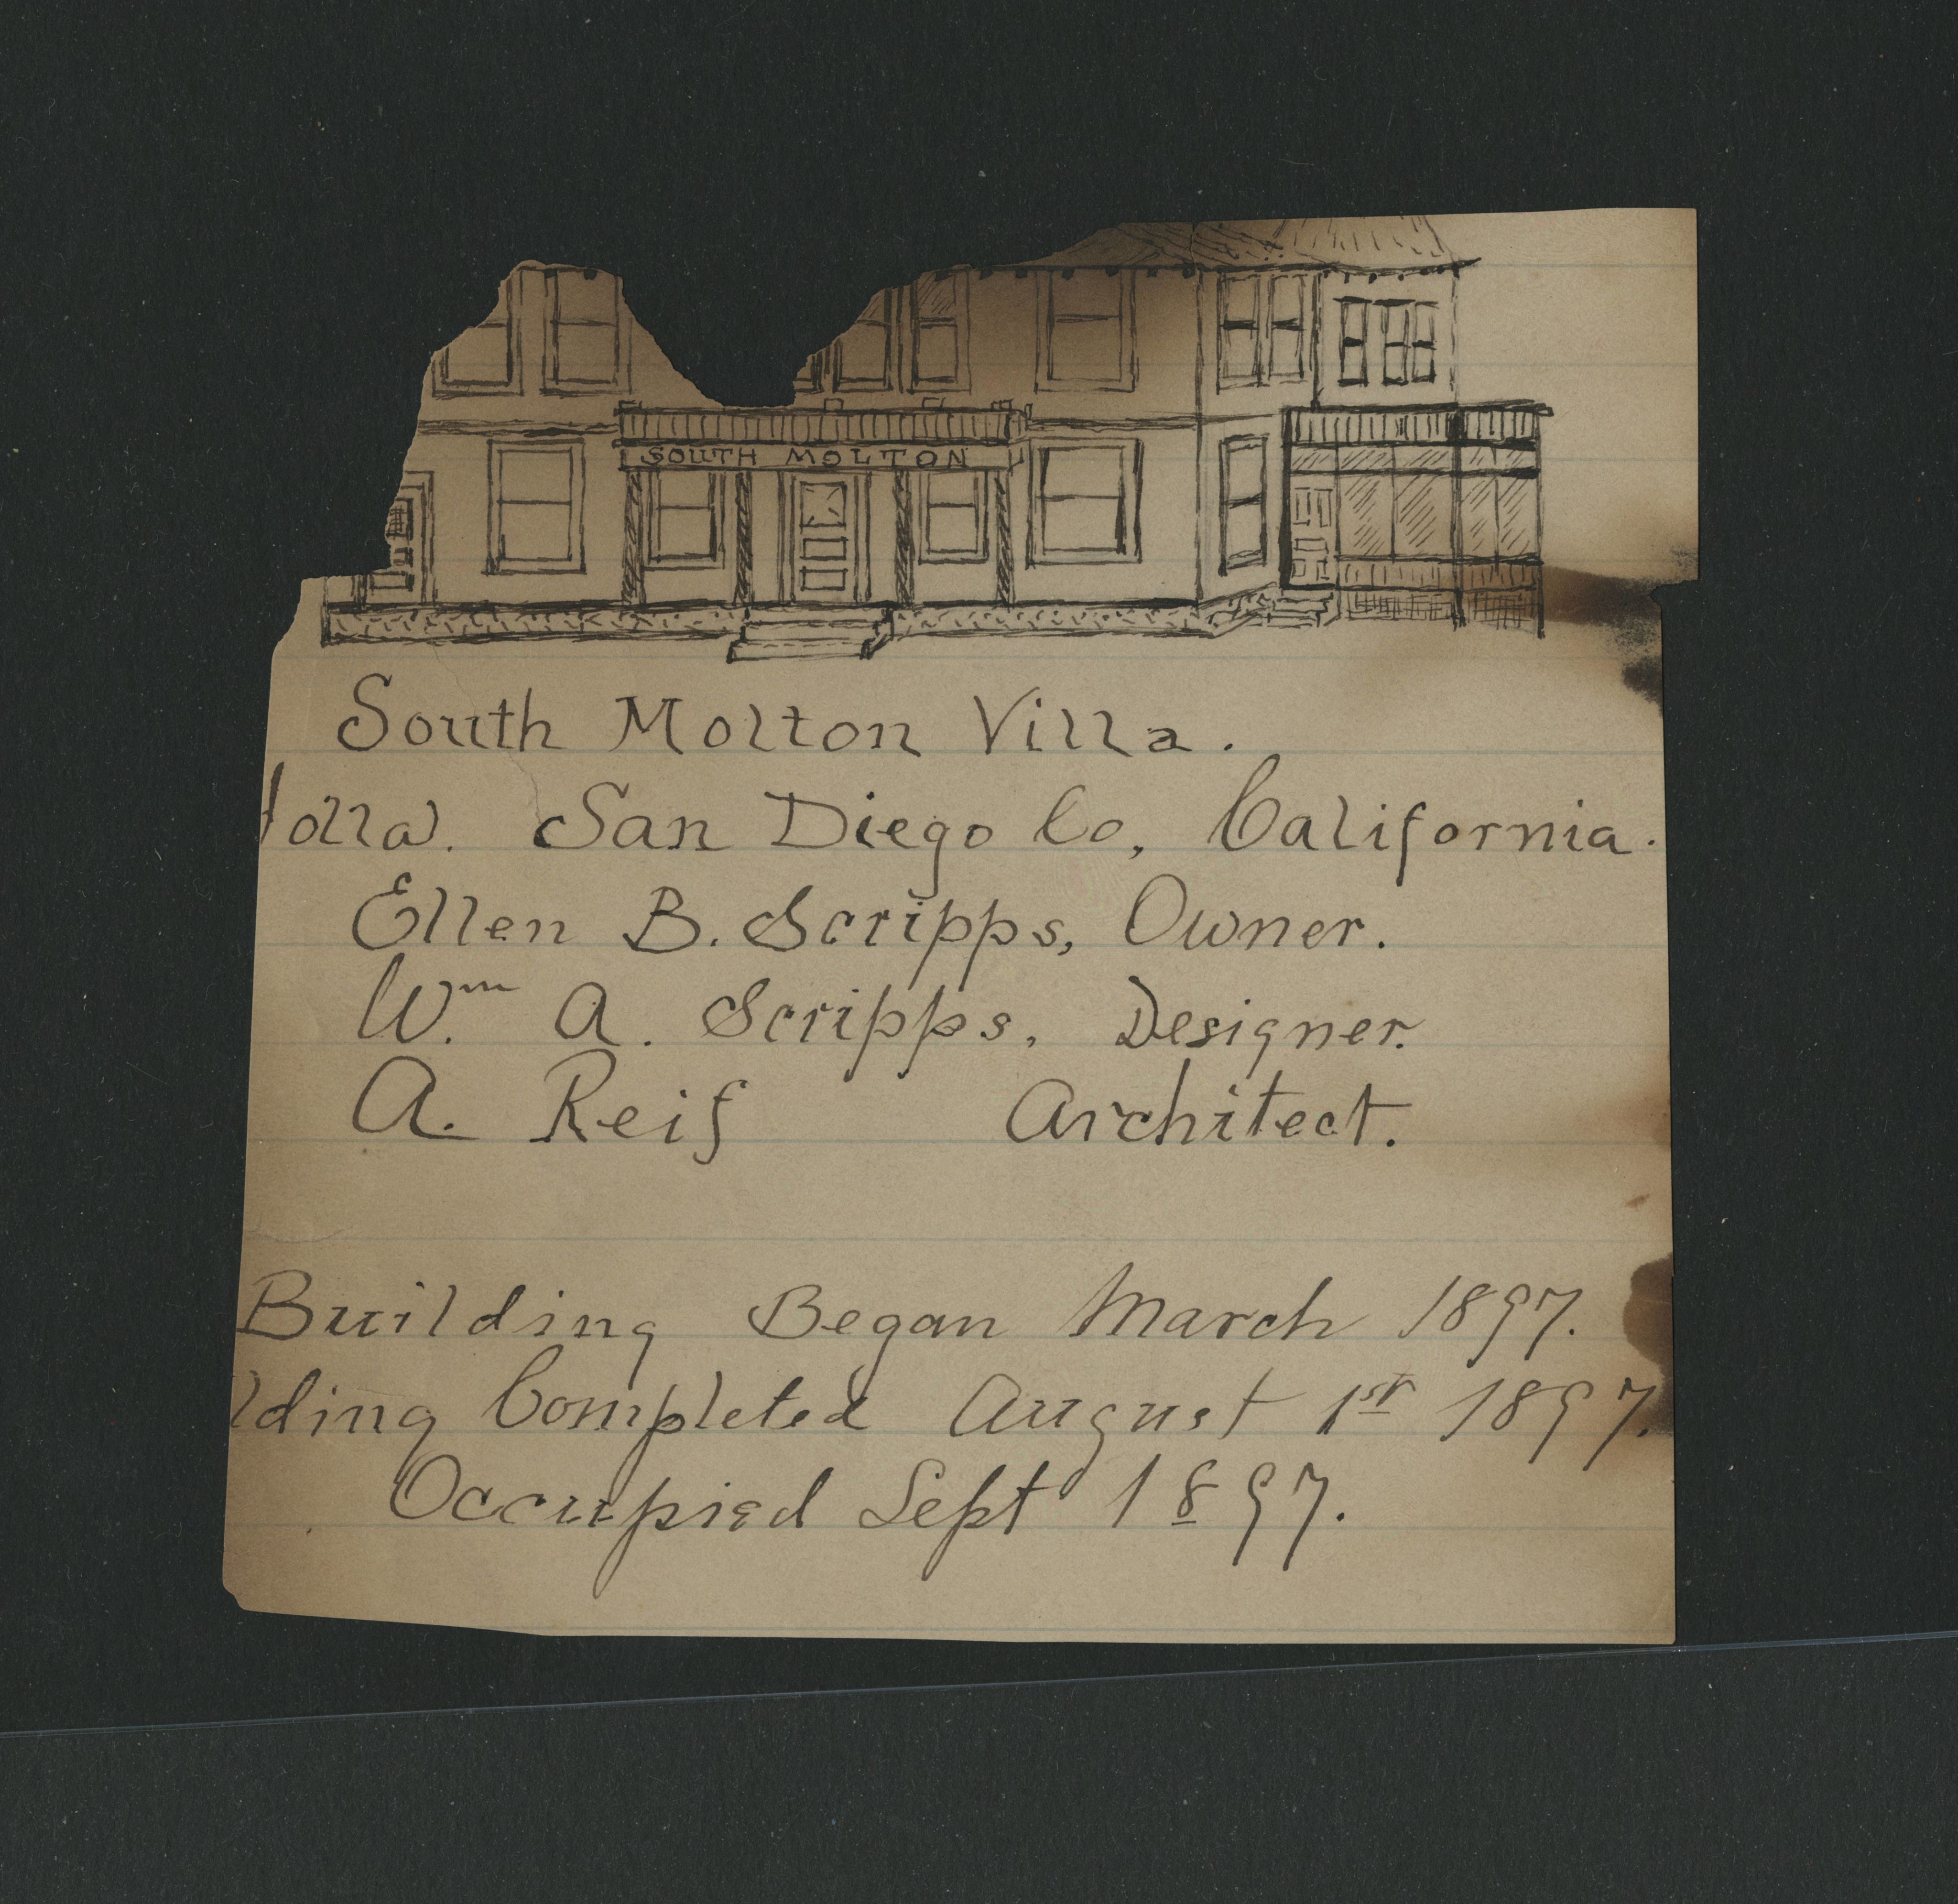 SOUTH MOLTON
South Molton Villa.
Jolla. San Diego Co, California.
Ellen B. Scripps, Owner.
Wm. A. Scripps, Designer.
A. Reif Architect.
Building Began March 1897.
lding Completed August 1st 1897.
Occupied Sept 1897.